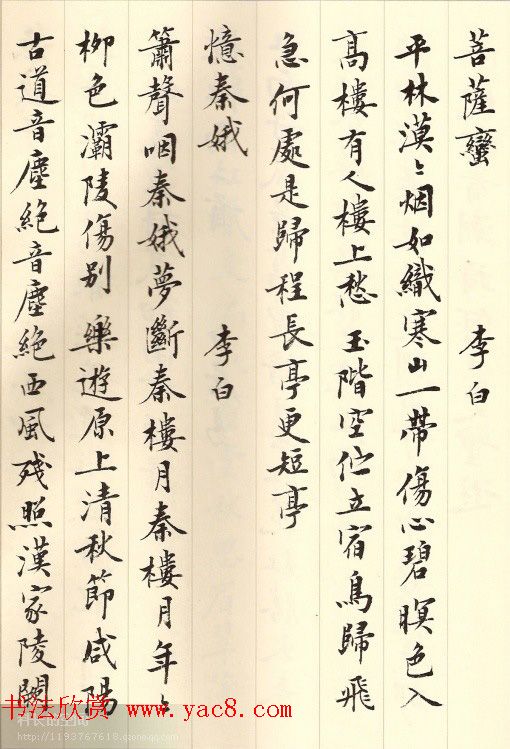 菩薩蠻 李白
平林漠〻烟如織寒山一帶傷心碧暝色入
高樓有人樓上愁玉階空佇立宿鳥歸飛
急何處是歸程長亭更短亭
憶秦娥 李白
簫聲咽秦娥夢斷秦樓月秦樓月年〻
柳色灞陵傷别樂遊原上清秋節咸陽
古道音塵絶音塵絶西風残照漢家陵闕
书法欣赏 www.yac8.com
http://1193767618.qzone.qq.com